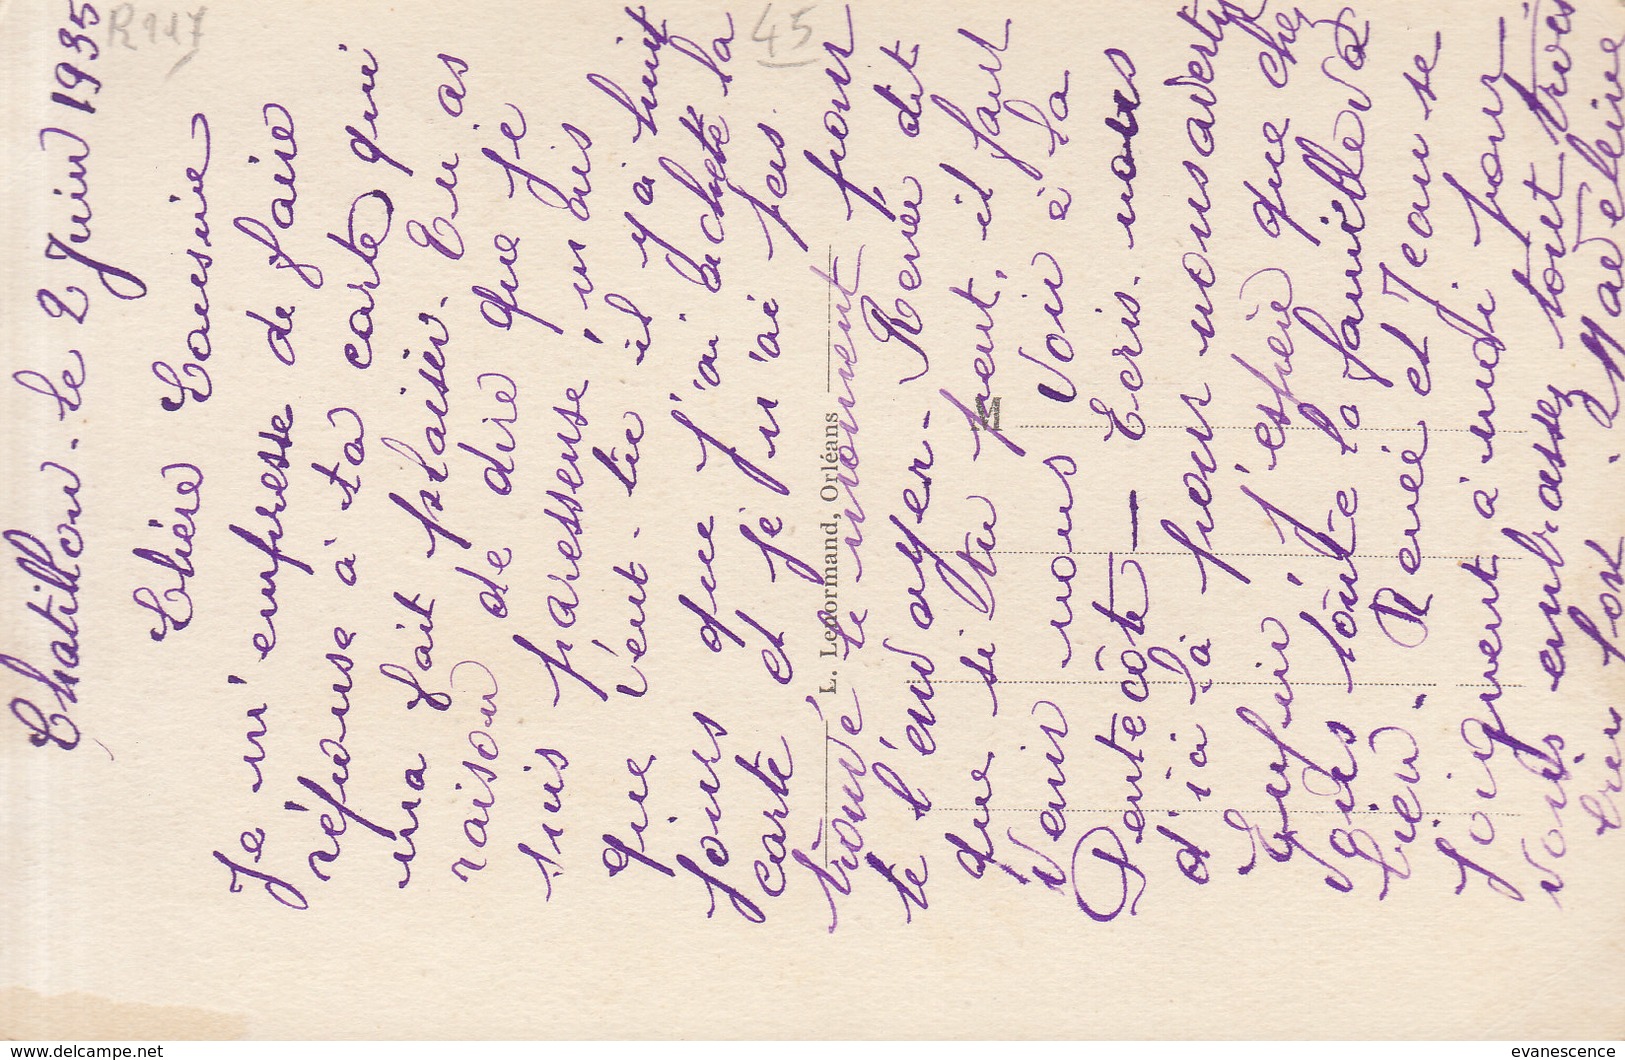 Chatillon. le 2 Juin 1935
Chère Cousine
Je m'empresse de faire
réponse à ta carte qui
ma fait plaisir. Tu as
raison de dire que je
suis paresseuse mais
que veut-tu il y a huit
jours que j'ai acheté la
carte et je n'ai pas
trouvé le moment pour
te l'envoyer. René dit
que si tu peut, il faut
venir nous voir à la
Pentecôte — Ecris nous
d'ici là pour nous avertir
Enfin j'espère que chez
vous toute la famille va
bien. René et Jean se
joignent à moi pour
vous embrasser tout trois
bien fort. Madeleine
L. Lenormand, Orléans
R117
45
www.delcampe.net
evanescence